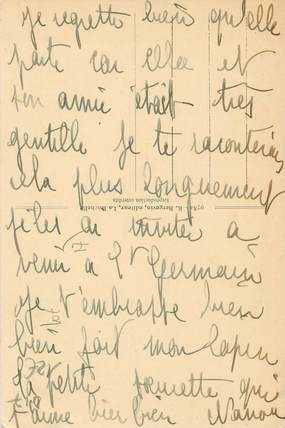 je regrette bien qu'elle
parte car elle et
son amie était très
gentille je te raconterai
cela plus longuement
je les ai invitée à
venir à St Germain
je t'embrasse bien
bien fort mon lapin
ta petite sœurette qui
t'aime bien bien Nanou
R. Bergevin, éditeur, La Rochelle
Reproduction interdite